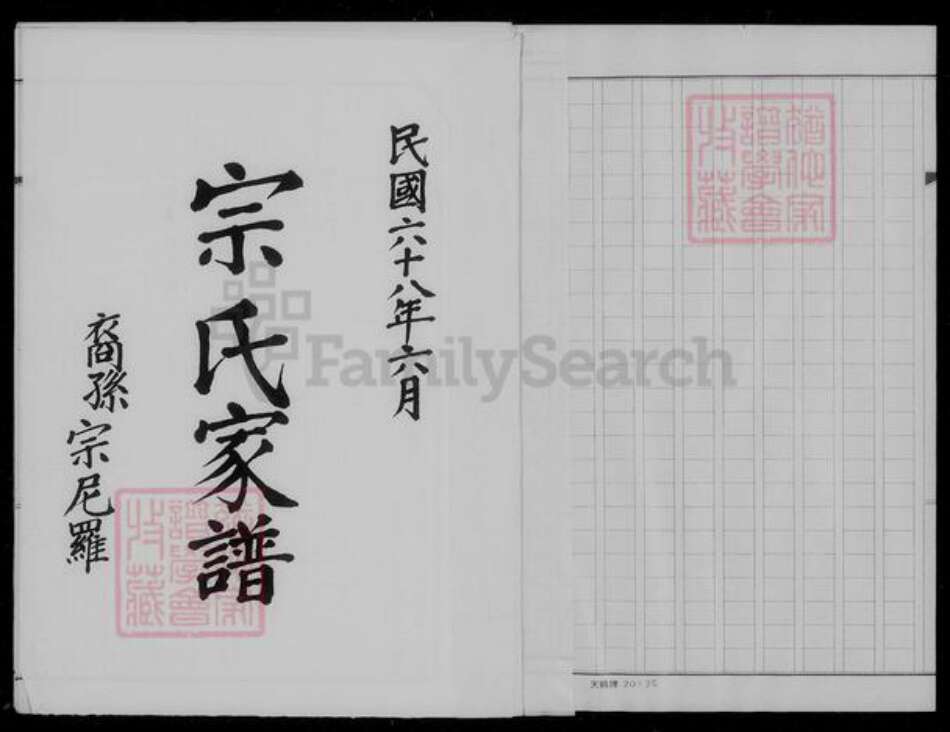 民國六十八年六月
宗氏家譜
裔孫宗尼羅
FamilySearch
譜學會
收藏
譜學會
收藏
20×25